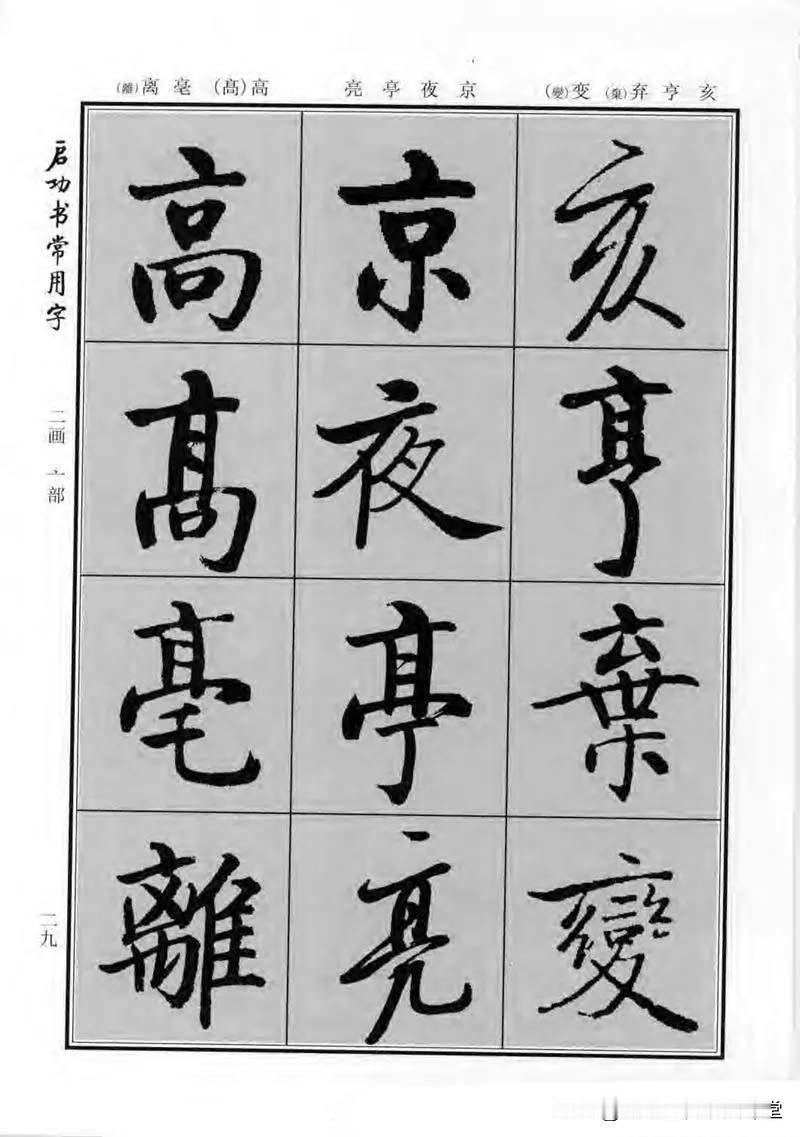 亥 亨 弃(棄) 变(變)
京 夜 亭 亮
高(髙) 毫 离(離)
亥
亨
棄
變
京
夜
亭
亮
高
髙
毫
離
启功书常用字
二画 亠部
二九